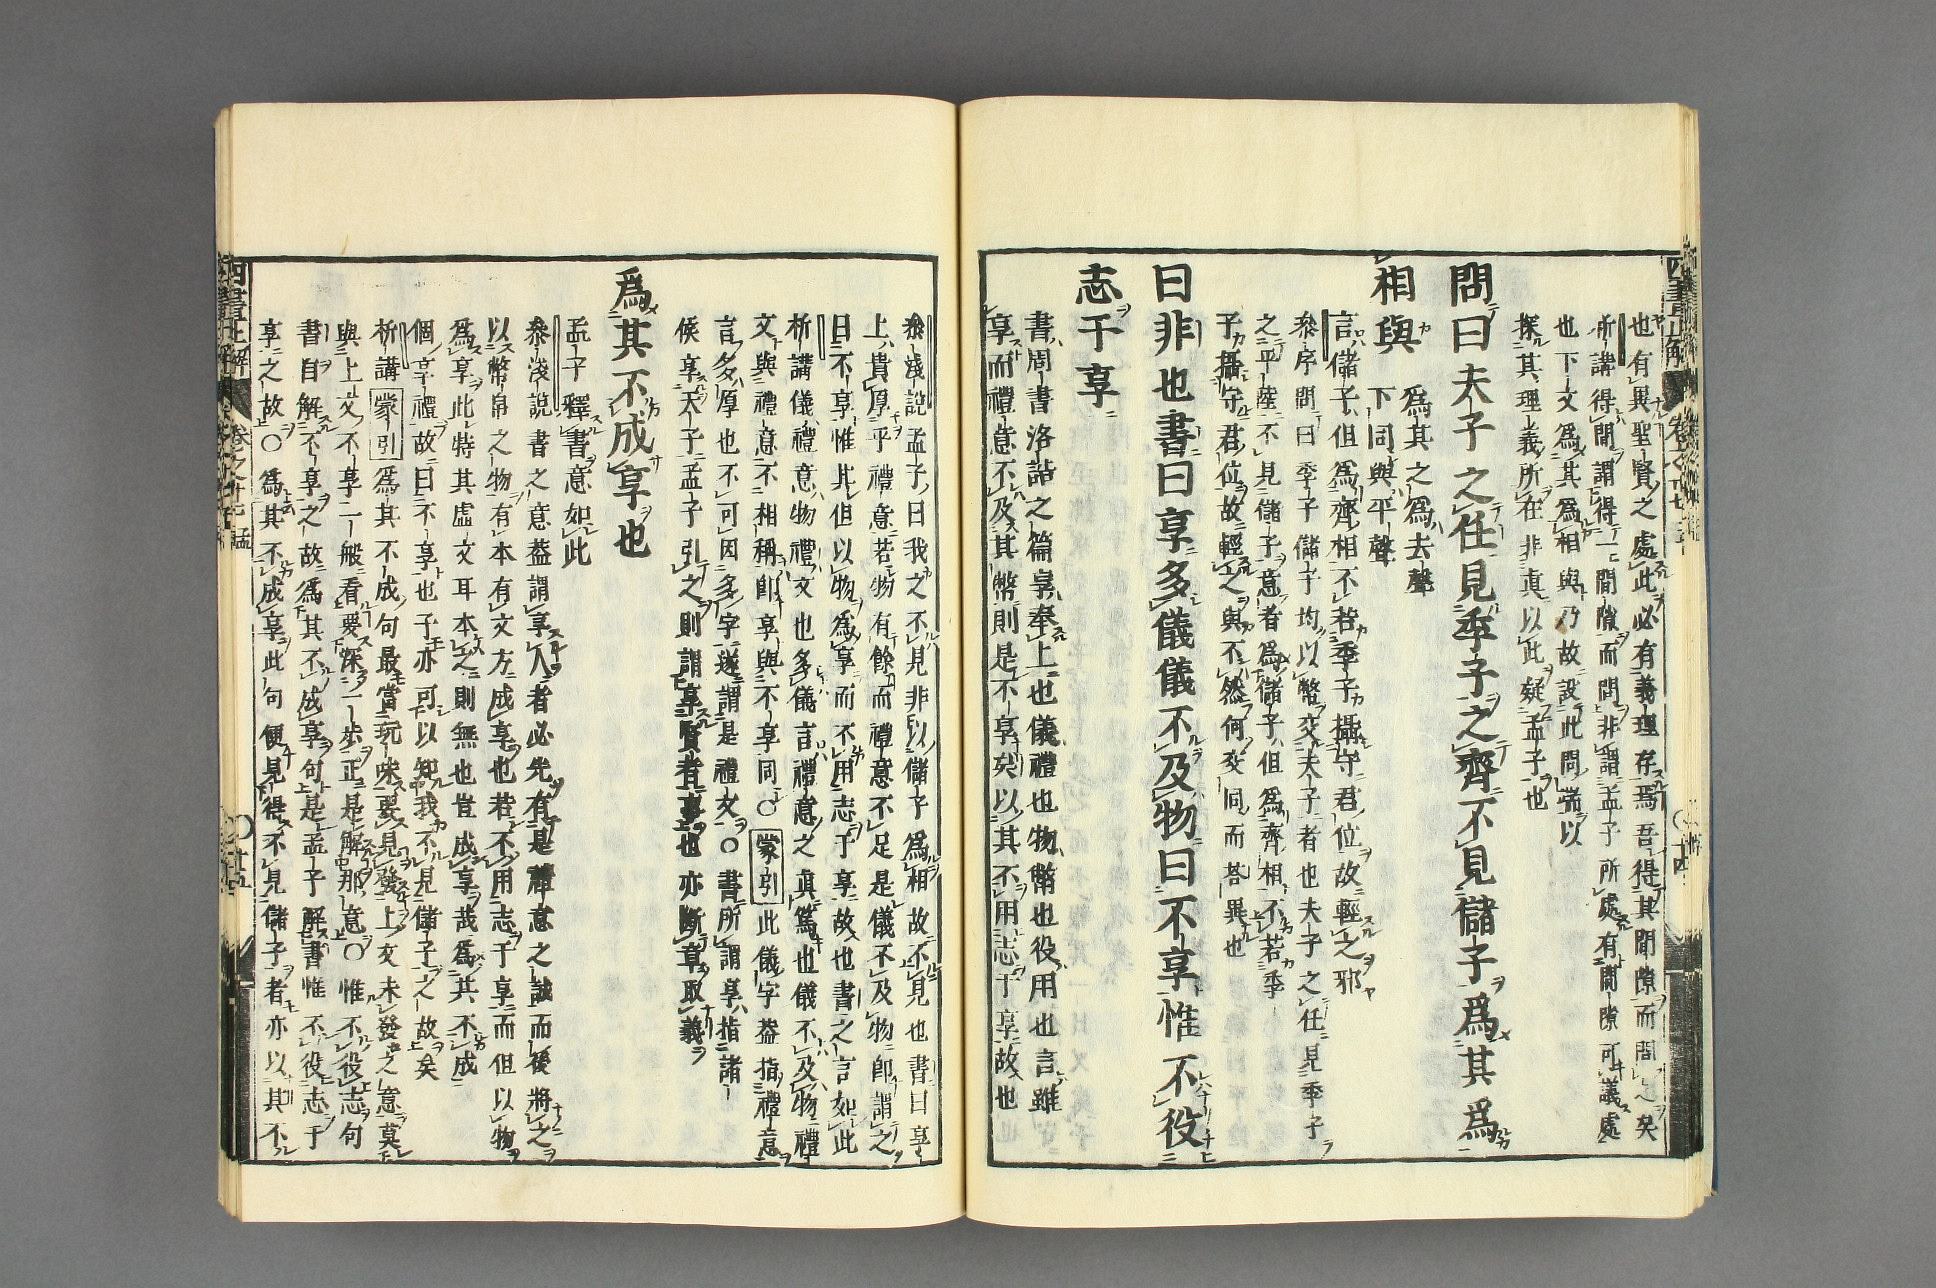 也有異聖賢之處此必有義理存焉吾得其間隙而問之矣
所講得間謂得一間隙而問非謂孟子所處有間隙可議處
也下文為其為相與乃故設此問端以
探其理義所在非真以此疑孟子也
問曰夫子之任見季子之齊不見儲子爲其爲
相與
為其之為去聲
下同與平聲
言儲子但為齊相不若季子攝守君位故輕之邪
參序問曰季子儲子均以幣交夫子者也夫子之任見季子
之平陸不見儲子意者為儲子但為齊相不若季
子攝守君位故輕之與不然何交同而答異也
曰非也書曰享多儀儀不及物曰不享惟不役
志于享
書周書洛誥之篇享奉上也儀禮也物幣也役用也言雖
享而禮意不及其幣則是不享矣以其不用志于享故也
參淺說孟子曰我之不見非以儲子為相故不見也書曰享
上貴厚乎禮意若物有餘而禮意不足是儀不及物即謂之
曰不享惟其但以物為享而不用志于享故也書之言如此
析講儀禮意物禮文也多儀言禮意之真篤也儀不及物禮
文與禮意不相稱即享與不享同○蒙引此儀字蓋指禮意
言多厚也不可因多字遂謂是禮文○書所謂享指諸
侯享天子孟子引之則謂享賢者事也亦斷章取義
孟子釋書意如此
爲其不成享也
參淺說書之意蓋謂享人者必先有是禮意之誠而後將之
以幣帛之物有本有文方成享也若不用志于享而但以物
為享此特其虛文耳本之則無也豈成享哉為其不成
個享禮故曰不享也子亦可以知我不見儲子之故矣
析講蒙引為其不成句最當玩味要見發上文未發之意莫
與上文不享一般看要深一步正是解那意○惟不役志句
書自解不享之故為其不成享句是孟子解書惟不役志于
享之故○為其不成享此句便見得不見儲子者亦以其不